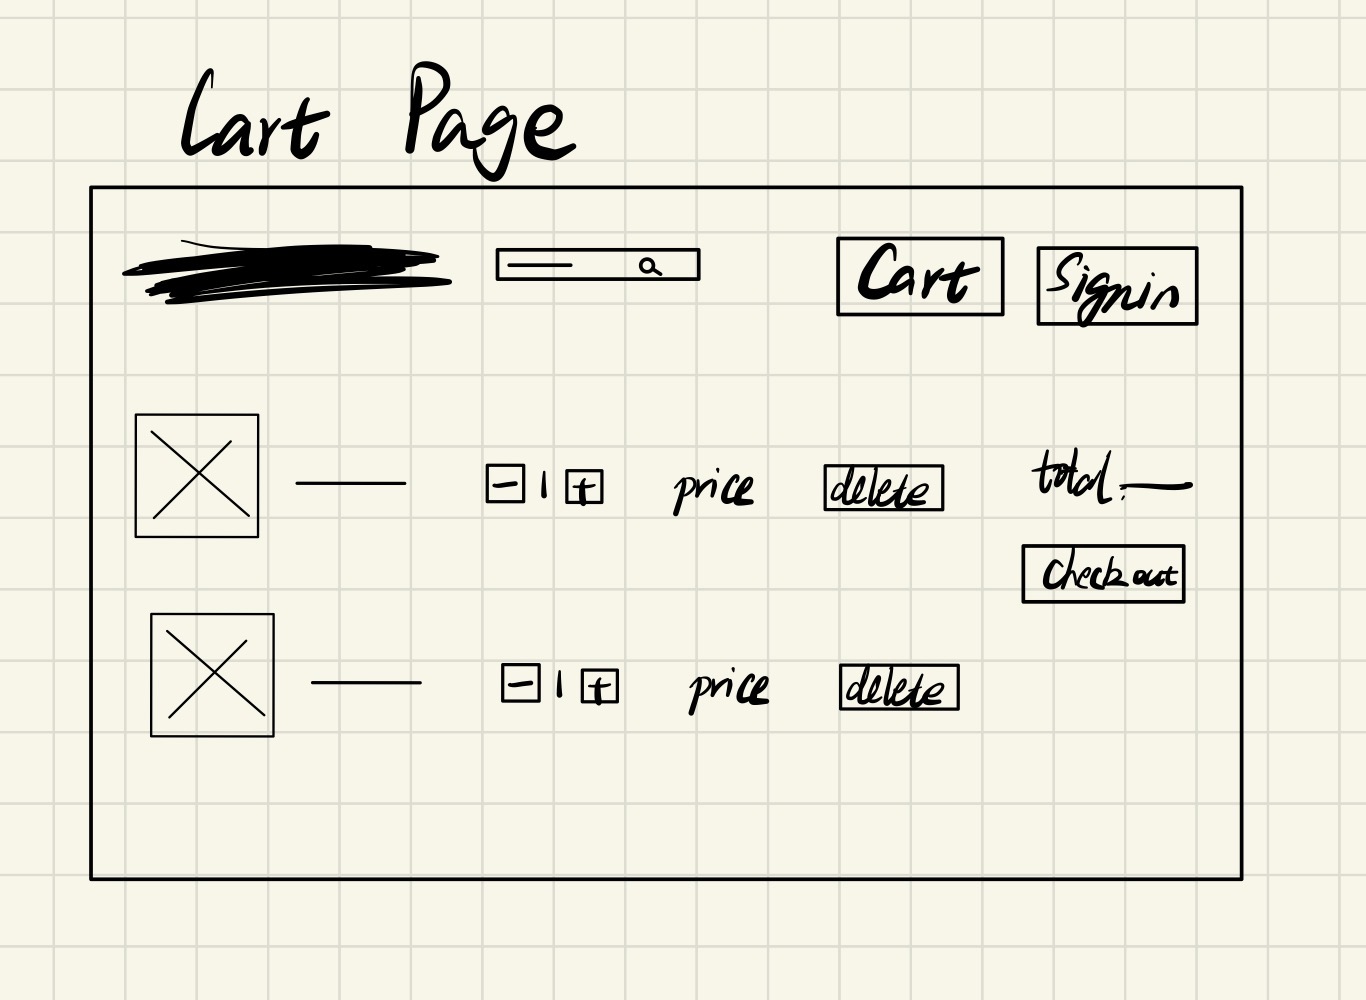 Cart Page
Cart Signin
- 1 + price delete total:
Checkout
- 1 + price delete